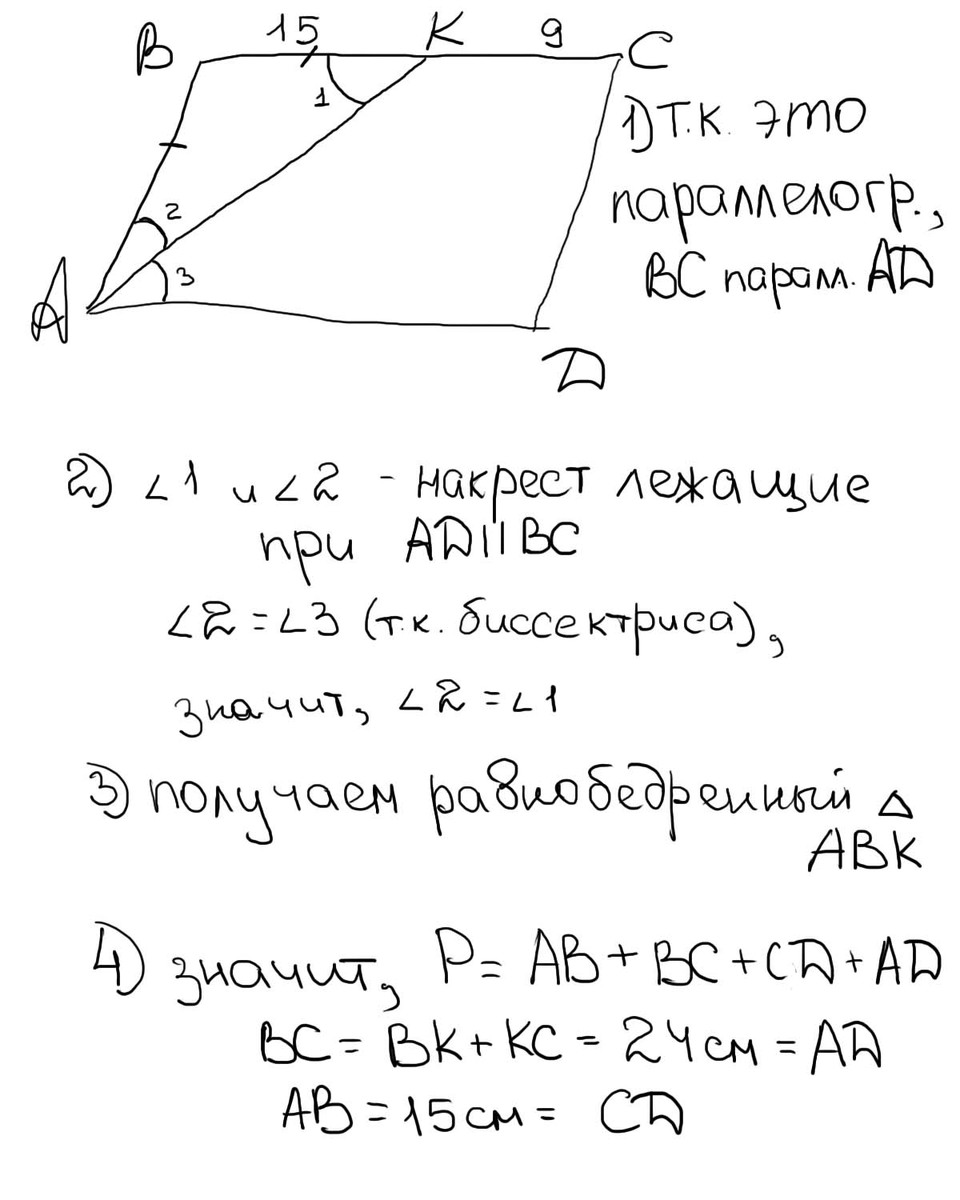 B 15 K 9 C
1
2
3
A
D
1) Т.К. это
параллелогр.,
BC парал. AD
2) ∠1 и ∠2 - накрест лежащие
при AD || BC
∠2 = ∠3 (т.к. биссектриса),
значит, ∠2 = ∠1
3) получаем равнобедренный △
ABK
4) значит, P = AB + BC + CD + AD
BC = BK + KC = 24 см = AD
AB = 15 см = CD